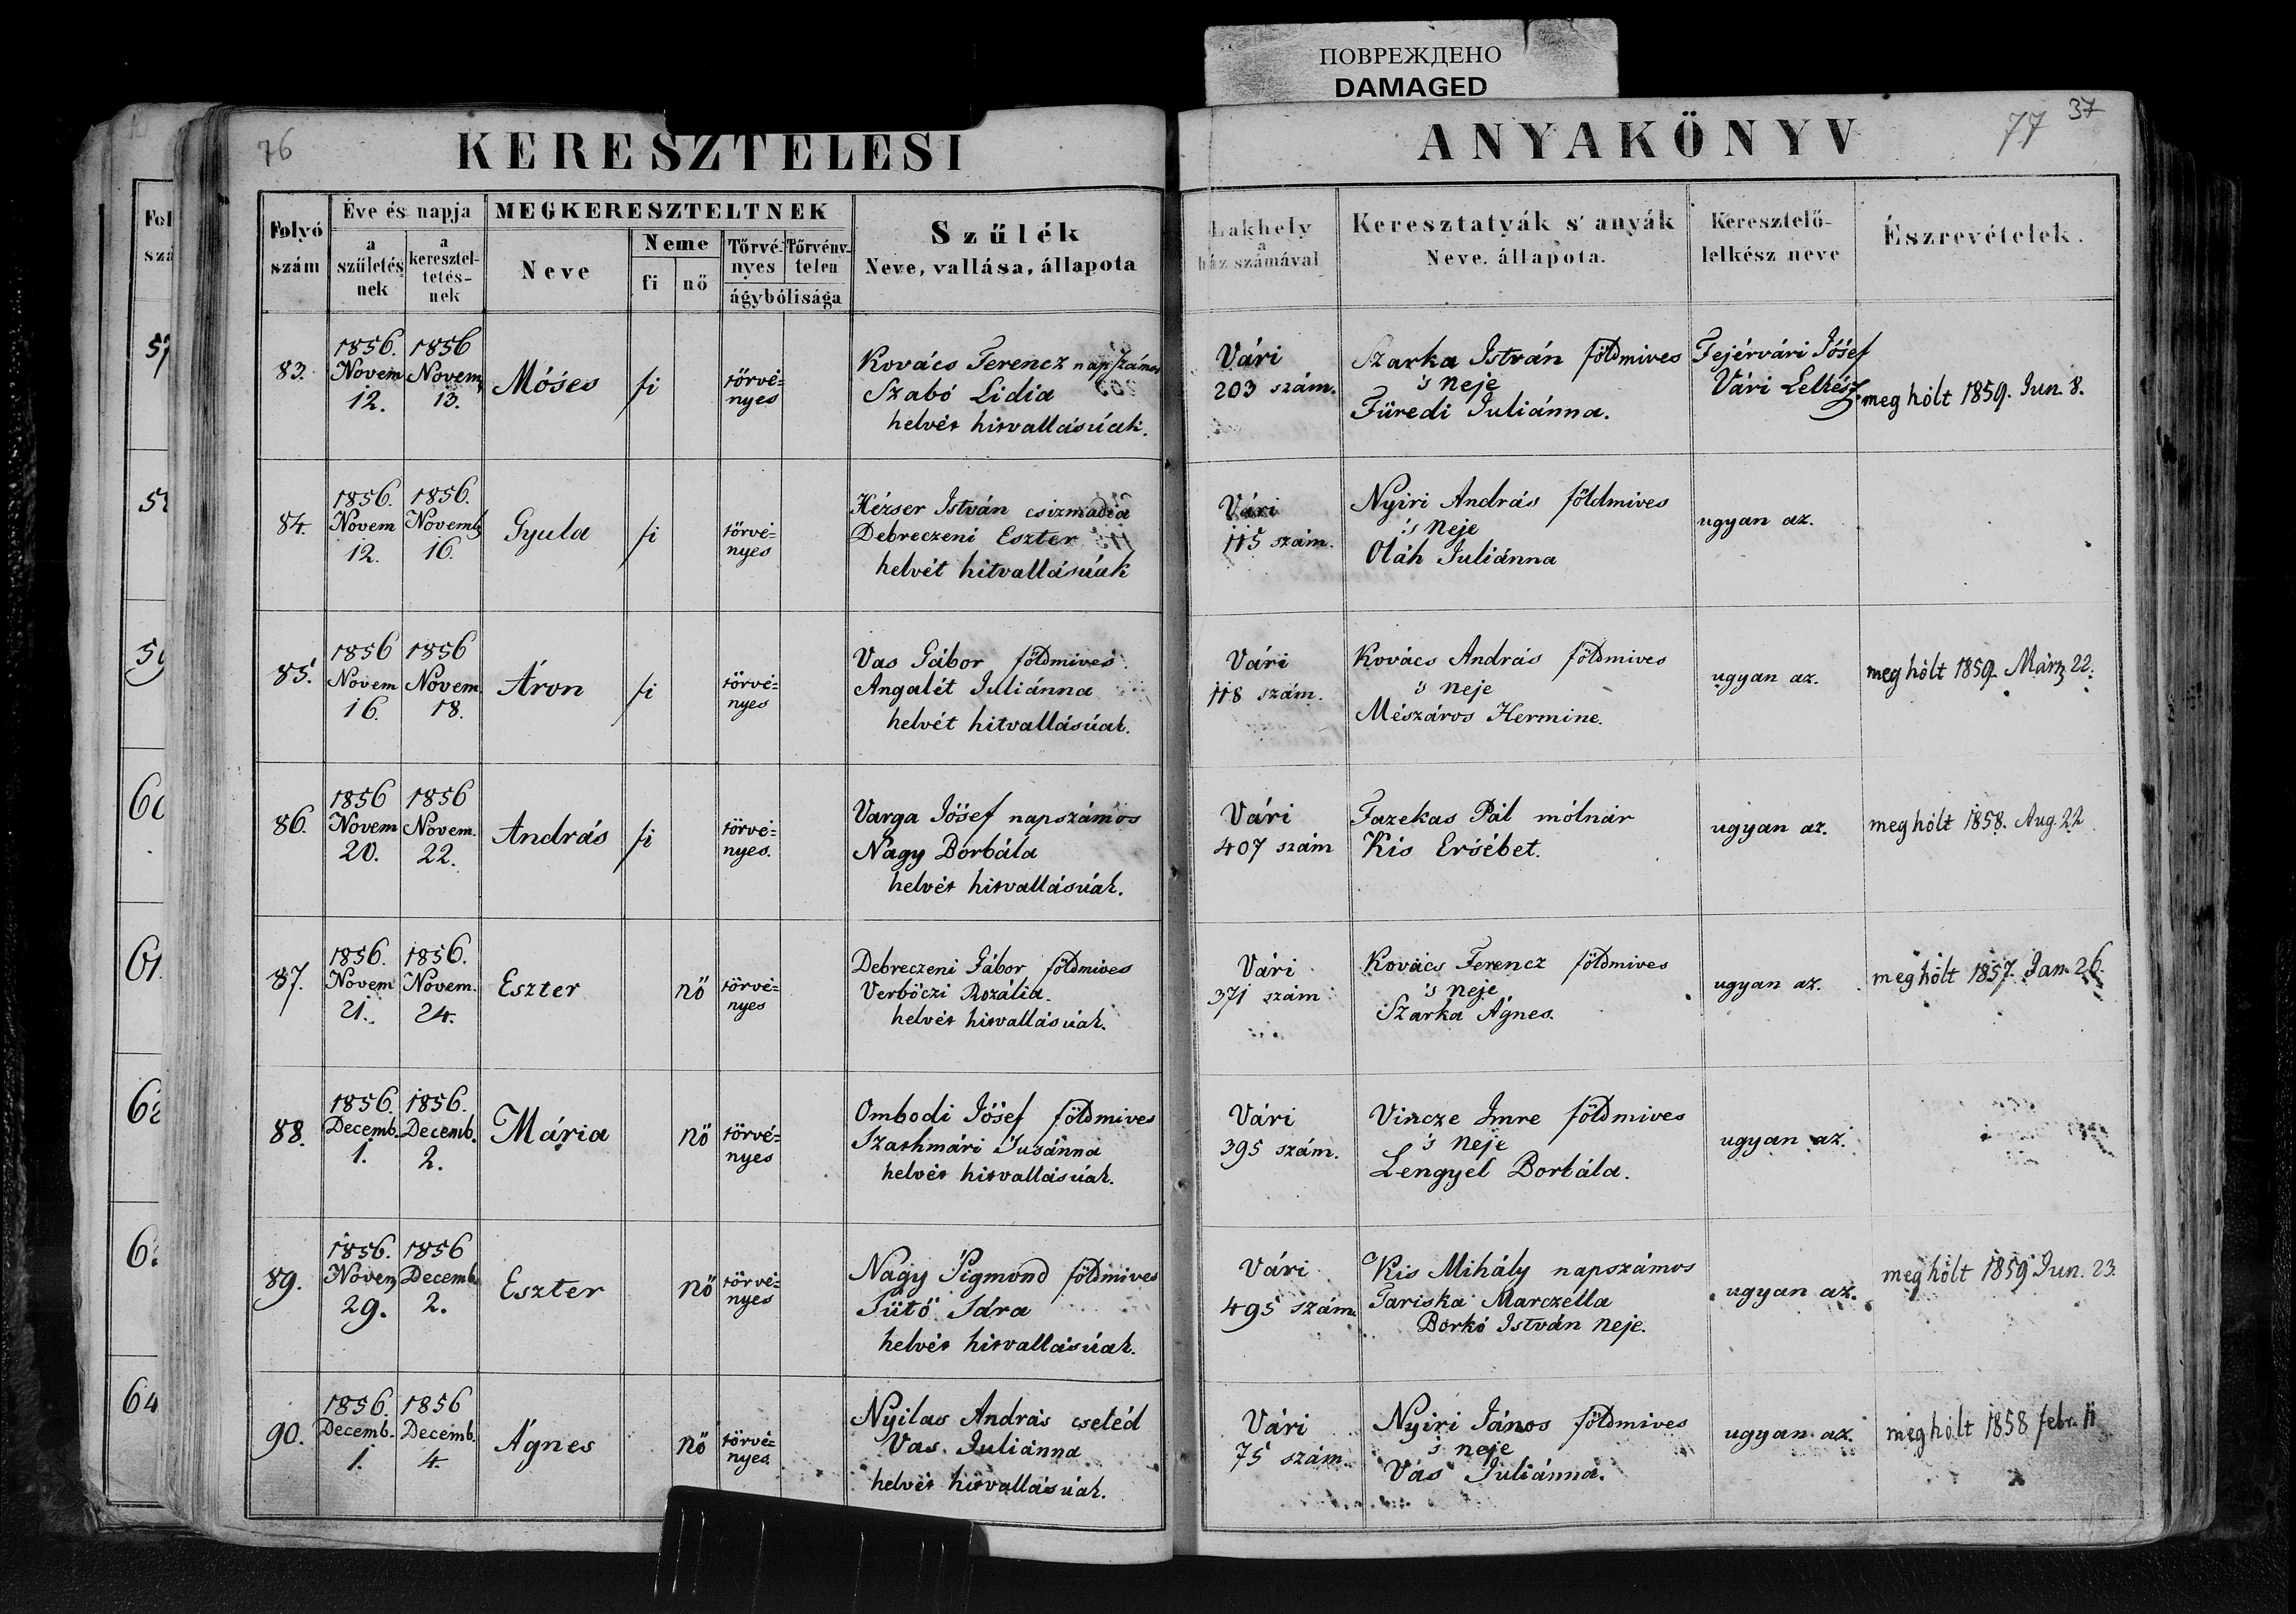 ПОВРЕЖДЕНО
DAMAGED
76
KERESZTELESI
ANYAKÖNYV
77
37
Folyó szám
Éve és napja
a születés nek
a keresztel- tetés- nek
MEGKERESZTELTNEK
Neve
Neme
fi
nő
Törvé- nyes
Törvény- telen
ágybólisága
Szülék
Neve, vallása, állapota
Lakhely
a
ház számával
Keresztatyák s' anyák
Neve, állapota.
Keresztelő-
lelkész neve
Észrevételek.
83.
1856. Novem 12.
1856 Novem. 13.
Móses
fi
törvé= nyes
Kovács Ferencz napszámos
Szabó Lidia
helvét hitvallásúak.
Vári
203 szám.
Szarka István földmives
's neje
Füredi Juliánna.
Fejérvári Jósef
Vári Lelkész.
meg hólt 1859. Jun. 8.
84.
1856. Novem 12.
1856. Novemb 16.
Gyula
fi
törvé= nyes
Kézser István csizmadia
Debreczeni Eszter
helvét hitvallásúak
Vári
115 szám.
Nyiri András földmives
's Neje
Oláh Juliánna
ugyan az.
85.
1856 Novem 16.
1856 Novem. 18.
Áron
fi
törvé= nyes
Vas Gábor földmives.
Angalét Juliánna
helvét hitvallásúak.
Vári
118 szám.
Kovács András földmives
's neje
Mészáros Hermine.
ugyan az.
meg hólt 1859. Márz 22.
86.
1856 Novem 20.
1856 Novem. 22.
András
fi
törvé= nyes.
Varga Jósef napszámos
Nagy Borbála
helvét hitvallásúak.
Vári
407 szám
Fazekas Pál mólnár
Kis Ersébet.
ugyan az.
meg hólt 1858. Aug. 22
87.
1856. Novem 21.
1856. Novem. 24.
Eszter
nő
törvé= nyes
Debreczeni Gábor földmives
Verbőczi Rozália.
helvét hitvallásúak.
Vári
371 szám
Kovács Ferencz földmives
's neje
Szarka Ágnes.
ugyan az.
meg hólt 1857. Jan. 26.
88.
1856. Decemb. 1.
1856. Decemb. 2.
Mária
nő
törvé= nyes
Ombodi Jósef földmives
Szathmári Susánna
helvét hitvallásúak.
Vári
395 szám.
Vincze Imre földmives
's neje
Lengyel Borbála.
ugyan az.
89.
1856. Novem 29.
1856 Decemb. 2.
Eszter
nő
törvé= nyes
Nagy Sigmond földmives
Sütő Sára
helvét hitvallásúak.
Vári
495 szám.
Kis Mihály napszámos
Tariska Marczella
Borkó István neje.
ugyan az.
meg hólt 1859 Jun. 23.
90.
1856. Decemb. 1.
1856 Decemb. 4.
Ágnes
nő
törvé= nyes.
Nyilas András cseléd
Vas Juliánna
helvét hitvallásúak.
Vári
75 szám
Nyiri János földmives
's neje
Vas Juliánna.
ugyan az.
meg hólt 1858 febr. 11